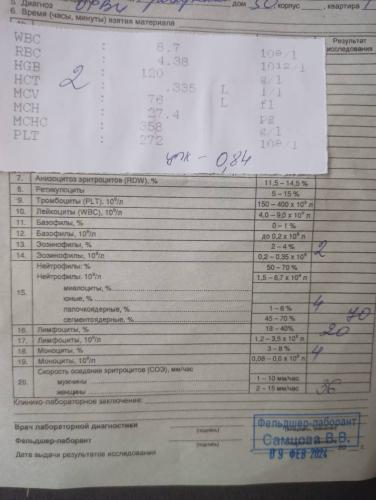 5. Диагноз ОРВИ дом 30 корпус , квартира 1
6. Время (часы, минуты) взятия материала
Результат исследования
WBC : 8.7 10⁹/l
RBC : 4.38 10¹²/l
HGB : 120 g/l
HCT : .335 L l/l
MCV : 76 L fl
MCH : 27.4 pg
MCHC : 358 g/l
PLT : 272 10⁹/l
2
цп - 0,84
7. Анизоцитоз эритроцитов (RDW), % 11,5 – 14,5 %
8. Ретикулоциты 5 – 15 %
9. Тромбоциты (PLT), 10⁹/л 150 – 400 x 10⁹ л
10. Лейкоциты (WBC), 10⁹/л 4,0 – 9,0 x 10⁹ л
11. Базофилы, % 0 – 1 %
12. Базофилы, 10⁹/л до 0,2 x 10⁹ л
13. Эозинофилы, % 2 – 4 % 2
14. Эозинофилы, 10⁹/л 0,2 – 0,35 x 10⁹ л
15. Нейтрофилы: % 50 – 70 %
Нейтрофилы: 10⁹/л 1,5 – 6,7 x 10⁹ л
миелоциты, %
юные, %
палочкоядерные, % 1 – 6 % 4
сегментоядерные, % 45 – 70 % 70
16. Лимфоциты, % 18 – 40% 20
17. Лимфоциты, 10⁹/л 1,2 – 3,5 x 10⁹ л
18. Моноциты, % 3 – 8 % 4
19. Моноциты, 10⁹/л 0,08 – 0,6 x 10⁹ л
20. Скорость оседания эритроцитов (СОЭ), мм/час
мужчины 1 – 10 мм/час
женщины 2 – 15 мм/час 36
Клинико-лабораторное заключение:
Врач лабораторной диагностики
(подпись)
Фельдшер-лаборант
(подпись)
Дата выдачи результатов исследования
Фельдшер-лаборант
Самцова В.В.
09 ФЕВ 2024